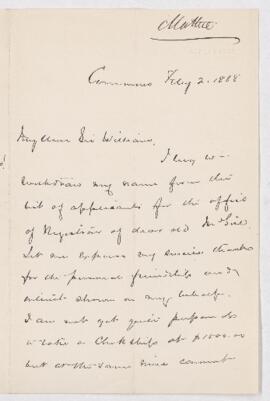 Matthew
Commons Feby 2. 1888
My dear Sir William,
I beg to
withdraw my name from the
list of applicants for the office
of Registrar of dear old McGill
Let me express my sincere thanks
for the personal friendship and
interest shown on my behalf.
I am not yet quite prepared
to take a Clerkship at $1500.00
but at the same time cannot